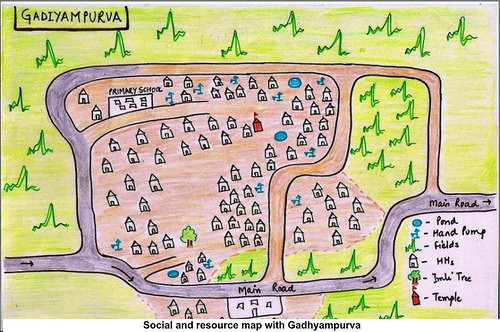 GADIYAMPURVA
PRIMARY SCHOOL
Main Road →
- Pond
- Hand Pump
- Fields
- HHs
- Imli Tree
- Temple
Main Road
Social and resource map with Gadhyampurva